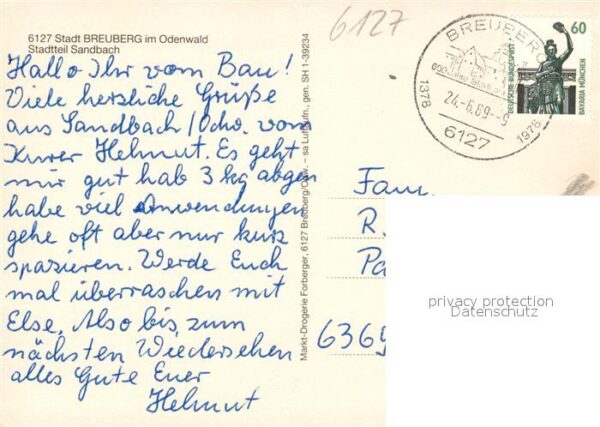 6127 Stadt BREUBERG im Odenwald
Stadtteil Sandbach
Hallo Ihr vom Bau!
Viele herzliche Grüße
aus Sandbach/Odw. vom
Kurer Helmut. Es geht
mir gut hab 3 kg abgen
habe viel Anwendungen
gehe oft aber nur kurz
spazieren. Werde Euch
mal überraschen mit
Else. Also bis zum
nächsten Wiedersehen
alles Gute Euer
Helmut
Markt-Drogerie Forberger, 6127 Breuberg/Odw. – sa Luftaufn., gen. SH 1-39234
6127
BREUBERG
600 Jahre
1378
24.-6.89.-9
1978
6127
60
DEUTSCHE BUNDESPOST
BAVARIA MÜNCHEN
Fam.
R.
Pa
6369
privacy protection
Datenschutz